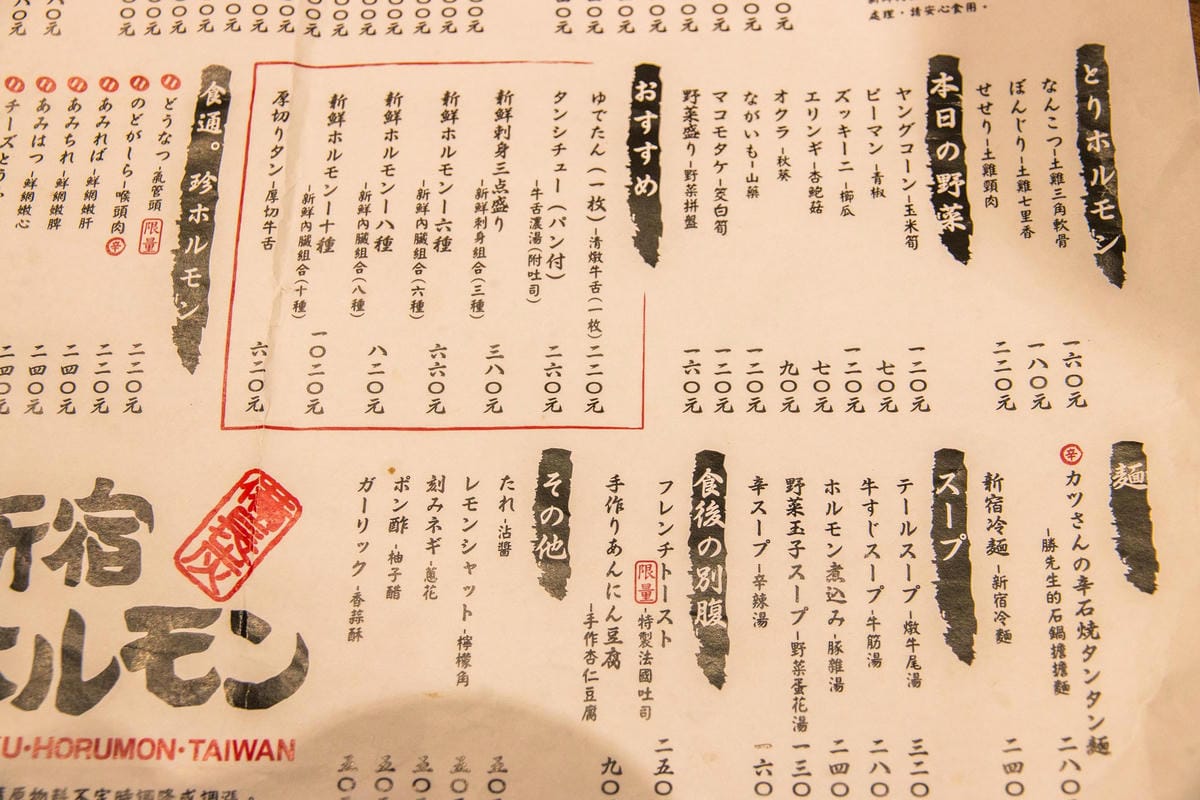 處理，請安心食用。
とりホルモン
なんこつ-土雞三角軟骨 一六〇元
ぼんじり-土雞七里香 一八〇元
せせり-土雞頸肉 二二〇元
本日の野菜
ヤングコーン-玉米筍 一二〇元
ピーマン-青椒 七〇元
ズッキーニ-櫛瓜 一二〇元
エリンギ-杏鮑菇 七〇元
オクラ-秋葵 九〇元
ながいも-山藥 一二〇元
マコモタケ-茭白筍 一二〇元
野菜盛り-野菜拼盤 一六〇元
おすすめ
ゆでたん(一枚)-清燉牛舌(一枚) 二二〇元
タンシチュー(パン付)
-牛舌濃湯(附吐司) 二六〇元
新鮮刺身三点盛り
-新鮮刺身組合(三種) 三八〇元
新鮮ホルモン-六種
-新鮮內臟組合(六種) 六六〇元
新鮮ホルモン-八種
-新鮮內臟組合(八種) 八二〇元
新鮮ホルモン-十種
-新鮮內臟組合(十種) 一〇二〇元
厚切りタン-厚切牛舌 六二〇元
食通。珍ホルモン
どうなつ-氣管頭 限量 二二〇元
のどがしら-喉頭肉 辛 二二〇元
あみれば-鮮網嫩肝 二四〇元
あみちれ-鮮網嫩脾 二四〇元
あみはつ-鮮網嫩心 二四〇元
麺
辛 カツさんの辛石焼タンタン麺
-勝先生的石鍋擔擔麵 二八〇
新宿冷麺-新宿冷麵 二四〇
スープ
テールスープ-燉牛尾湯 三二〇
牛すじスープ-牛筋湯 二八〇
ホルモン煮込み-豚雜湯 二四〇
野菜玉子スープ-野菜蛋花湯 一三〇
辛スープ-辛辣湯 一六〇
食後の別腹
フレンチトースト
限量 -特製法國吐司 二五〇
手作りあんにん豆腐
-手作杏仁豆腐 九〇
その他
たれ-沾醬 五〇
レモンシャット-檸檬角 五〇
刻みネギ-蔥花 五〇
ポン酢-柚子醋 五〇
ガーリック-香蒜酥 五〇
新宿
ホルモン
KU·HORUMON·TAIWAN